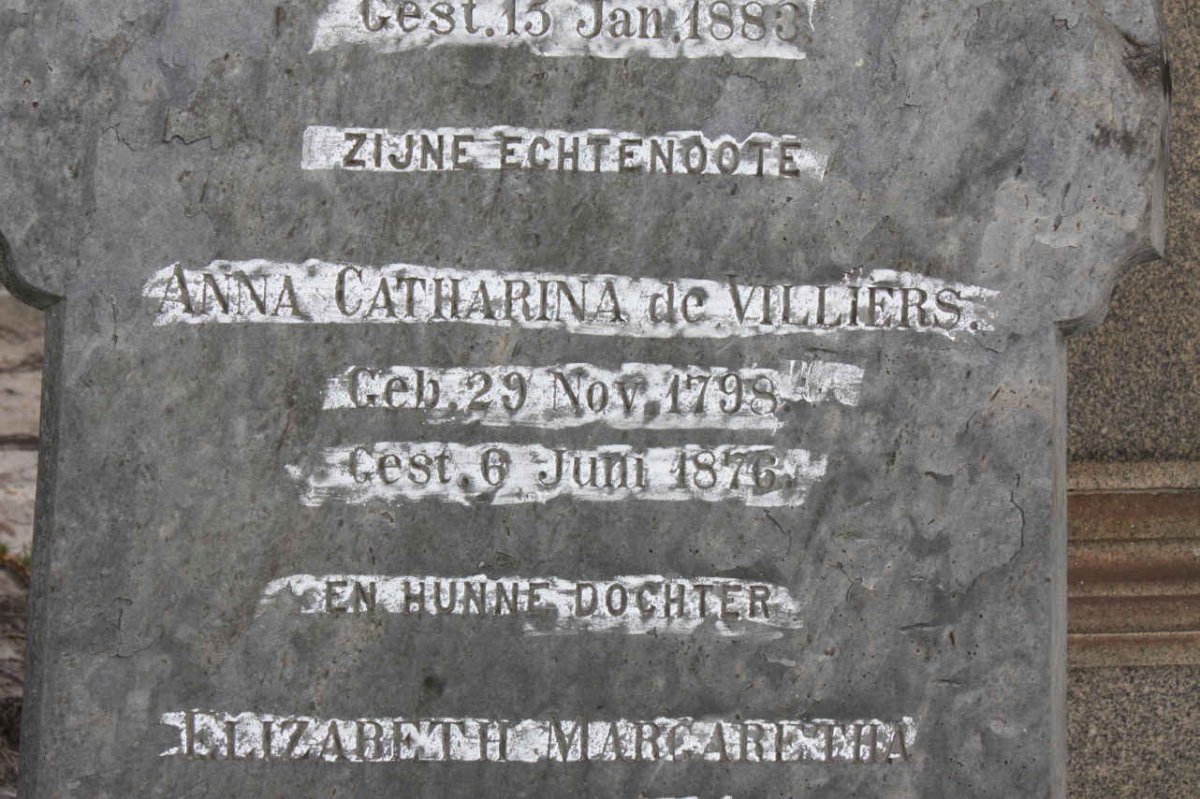 Gest. 15 Jan. 1883.
ZIJNE ECHTENOOTE
ANNA CATHARINA de VILLIERS.
Geb. 29 Nov. 1798.
Gest. 6 Juni 1876.
EN HUNNE DOCHTER
ELIZABETH MARGARETHA